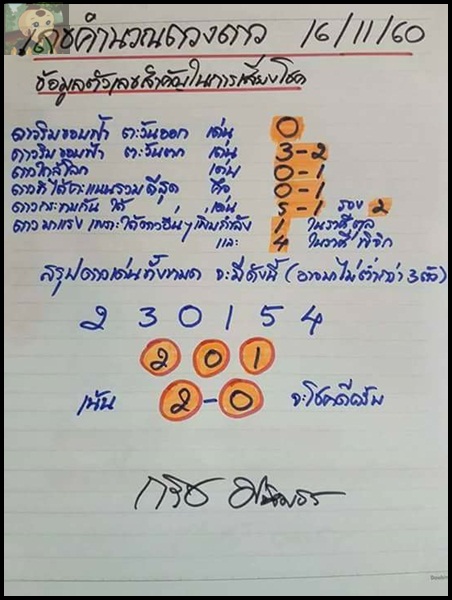 เลขคำนวณดวงดาว 16/11/60
ข้อมูลตัวเลขสำคัญในการเสี่ยงโชค
ดาวริมขอบฟ้า ตะวันออก เด่น 0
ดาวริมขอบฟ้า ตะวันตก เด่น 3-2
ดาวใกล้โลก เด่น 0-1
ดาวที่ได้คะแนนรวมดีสุด คือ 0-1
ดาวกระทบกัน ได้ 5-1 รอง 2
ดาวมาแรง เพราะได้ดาวอื่นๆ เพิ่มกำลัง 1 ในราศีตุล
และ 4 ในราศีพิจิก
สรุปดาวเด่นทั้งหมด จะมีดังนี้ (อาจมาไม่ต่ำกว่า 3 ตัว)
2 3 0 1 5 4
2 0 1
เน้น 2-0 จะโชคดีครับ